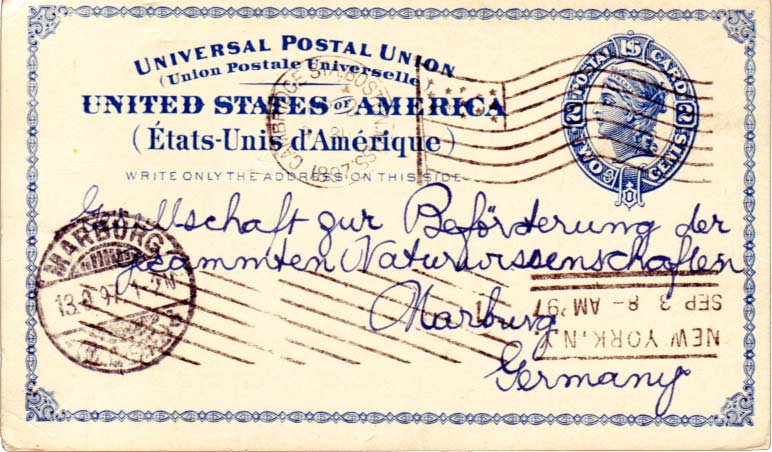 UNIVERSAL POSTAL UNION
(Union Postale Universelle).
UNITED STATES OF AMERICA
(États-Unis d'Amérique)
WRITE ONLY THE ADDRESS ON THIS SIDE
POSTAL CARD
U S
TWO CENTS
CAMBRIDGE STA. BOSTON, MASS.
1897
Gesellschaft zur Beförderung der
gesammten Naturwissenschaften
Marburg
Germany
MARBURG
13.9.97. 1-2N
NEW YORK, N.Y.
SEP 3 8-AM '97